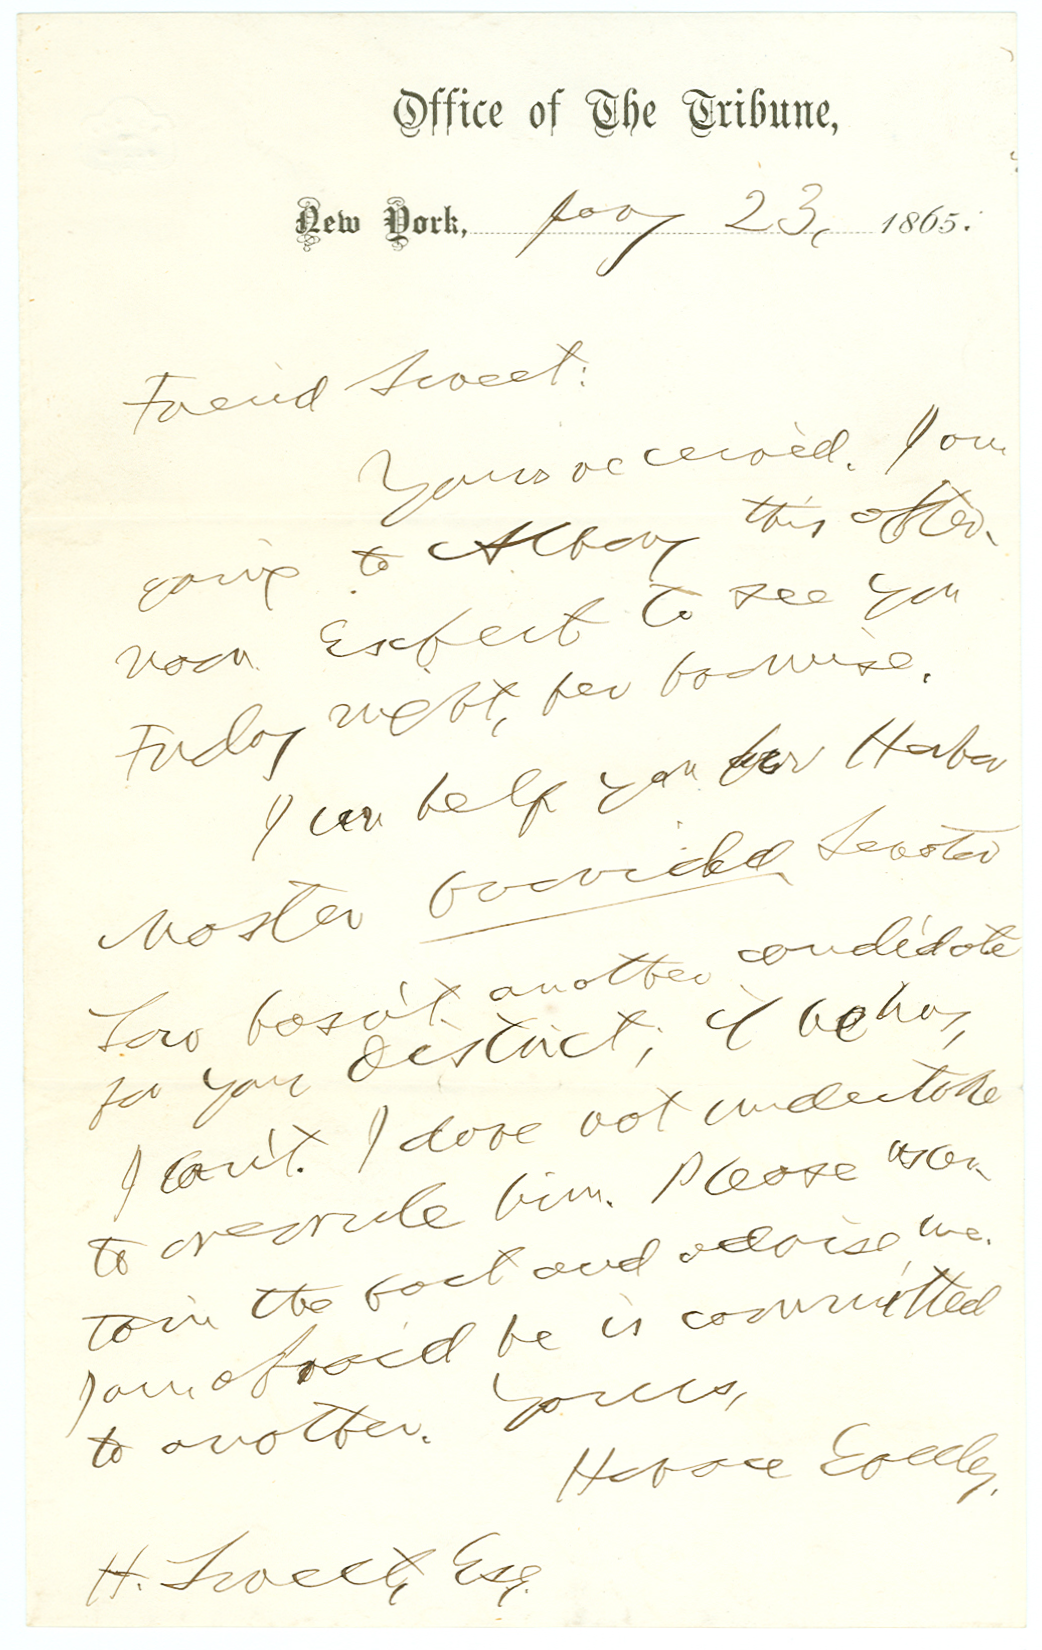 Office of The Tribune,
New York, Jany 23, 1865.
Friend Sweet:
Yours received. I am
going to Albany this after-
noon. Expect to see you
Friday night, per promise.
I can help you for Harbor
Master provided Senator
Low hasn't another candidate
for your District; if he has,
I can't. I dare not undertake
to overrule him. Please ascer-
tain the fact and advise me.
I am afraid he is committed
to another. Yours,
Horace Greeley.
H. Sweet, Esq.